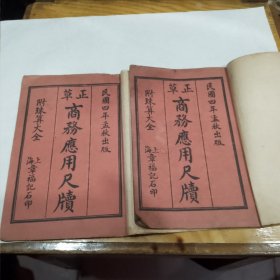 民國四年孟秋出版
正草
商務應用尺牘
附珠算大全
上海章福記石印
民國四年孟秋出版
正草
商務應用尺牘
附珠算大全
上海章福記石印